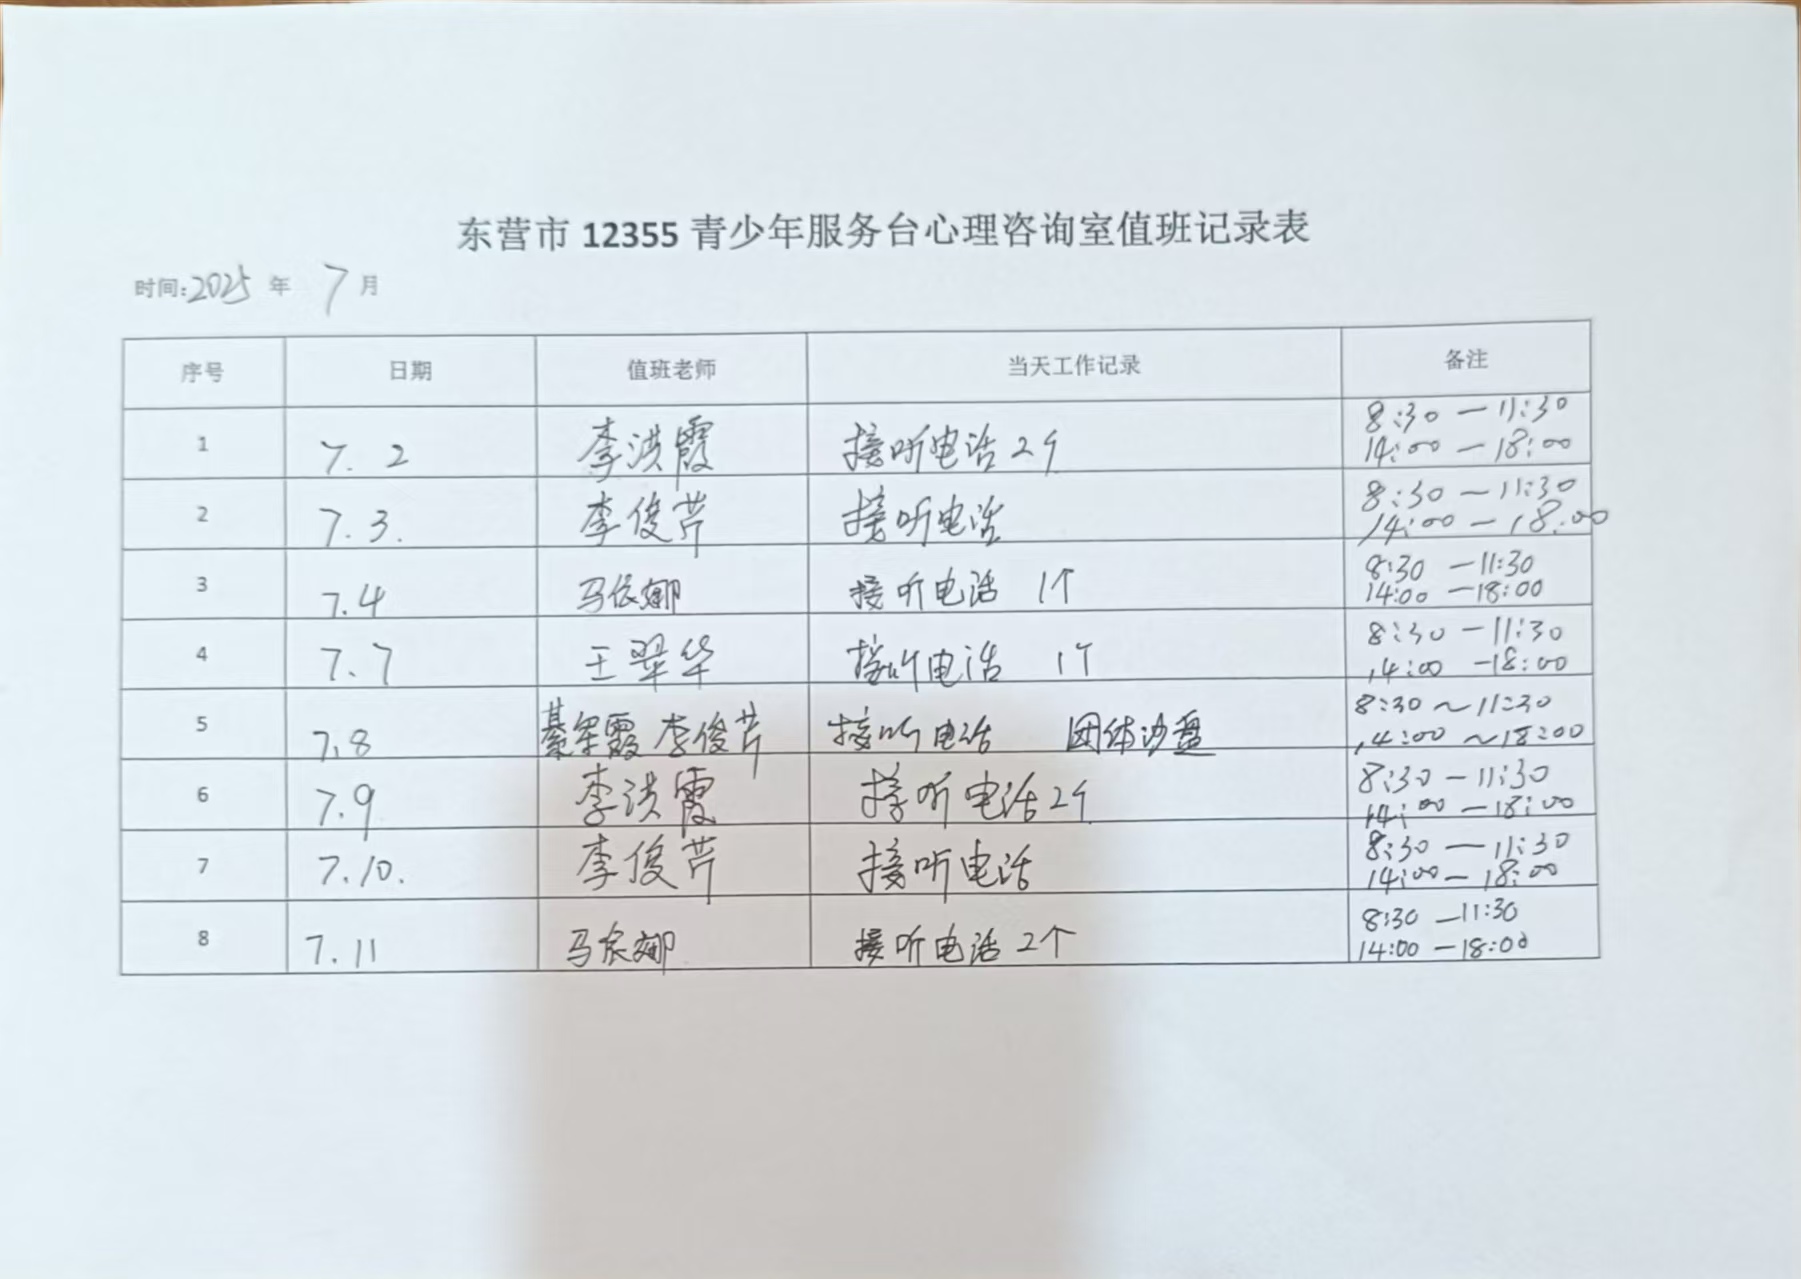 东营市 12355 青少年服务台心理咨询室值班记录表
时间:2025 年 7 月
序号 日期 值班老师 当天工作记录 备注
1 7. 2 李洪霞 接听电话 2个 8:30 — 11:30
14:00 — 18:00
2 7. 3. 李俊芹 接听电话 8:30 — 11:30
14:00 — 18:00
3 7.4 马依娜 接听电话 1个 8:30 — 11:30
14:00 — 18:00
4 7.7 王翠华 接听电话 1个 8:30 — 11:30
14:00 — 18:00
5 7.8 綦军霞 李俊芹 接听电话 团体沙盘 8:30 ~ 11:30
14:00 ~ 18:00
6 7.9 李洪霞 接听电话 2个 8:30 — 11:30
14:00 — 18:00
7 7.10. 李俊芹 接听电话 8:30 — 11:30
14:00 — 18:00
8 7.11 马依娜 接听电话 2个 8:30 — 11:30
14:00 — 18:00